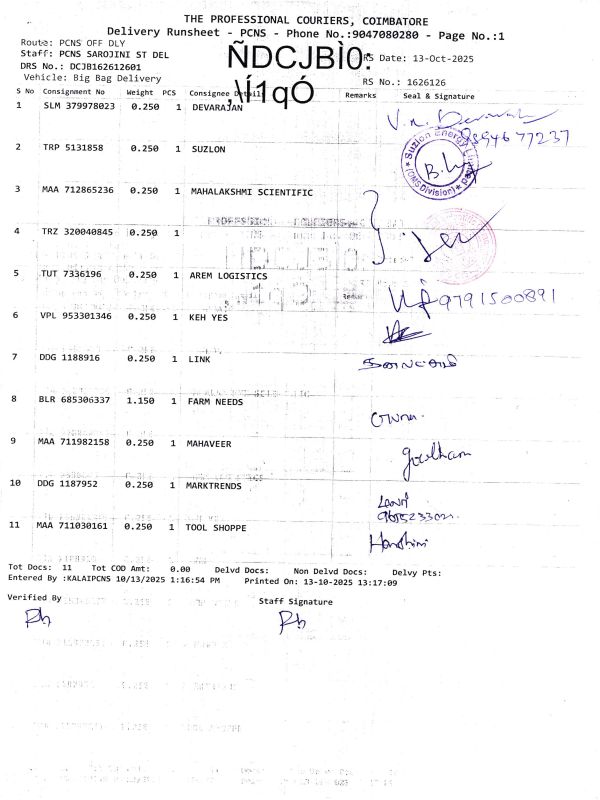 THE PROFESSIONAL COURIERS, COIMBATORE
Delivery Runsheet - PCNS - Phone No.:9047080280 - Page No.:1
Route: PCNS OFF DLY
Staff: PCNS SAROJINI ST DEL
ÑDCJBÌ0:
RS Date: 13-Oct-2025
DRS No.: DCJB162612601
Vehicle: Big Bag Delivery
,\Í1qÓ
RS No.: 1626126
S No Consignment No Weight PCS Consignee Details Remarks Seal & Signature
1 SLM 379978023 0.250 1 DEVARAJAN
2 TRP 5131858 0.250 1 SUZLON
Suzlon Energy
(OMS Division)
3 MAA 712865236 0.250 1 MAHALAKSHMI SCIENTIFIC
4 TRZ 320040845 0.250 1
5 TUT 7336196 0.250 1 AREM LOGISTICS
9791500891
6 VPL 953301346 0.250 1 KEH YES
7 DDG 1188916 0.250 1 LINK
8 BLR 685306337 1.150 1 FARM NEEDS
9 MAA 711982158 0.250 1 MAHAVEER
Gowtham
10 DDG 1187952 0.250 1 MARKTRENDS
11 MAA 711030161 0.250 1 TOOL SHOPPE
Tot Docs: 11 Tot COD Amt: 0.00 Delvd Docs: Non Delvd Docs: Delvy Pts:
Entered By :KALAIPCNS 10/13/2025 1:16:54 PM Printed On: 13-10-2025 13:17:09
Verified By
Staff Signature